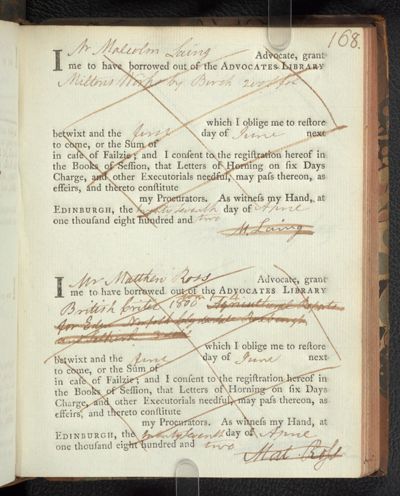 168.
I Mr Malcolm Laing Advocate, grant
me to have borrowed out of the ADVOCATES LIBRARY
Miltons Works by Birch 2 vols
which I oblige me to reſtore
betwixt and the first day of June next
to come, or the Sum of
in caſe of Failzie; and I conſent to the regiſtration hereof in
the Books of Seſſion, that Letters of Horning on ſix Days
Charge, and other Executorials needful, may paſs thereon, as
effeirs, and thereto conſtitute
my Procurators. As witneſs my Hand, at
EDINBURGH, the day of Aprile
one thouſand eight hundred and two
M. Laing
I Mr Matthew Ross Advocate, grant
me to have borrowed out of the ADVOCATES LIBRARY
British Critic 1800 Agricultural Reports
for
and
which I oblige me to reſtore
betwixt and the first day of June next
to come, or the Sum of
in caſe of Failzie; and I conſent to the regiſtration hereof in
the Books of Seſſion, that Letters of Horning on ſix Days
Charge, and other Executorials needful, may paſs thereon, as
effeirs, and thereto conſtitute
my Procurators. As witneſs my Hand, at
EDINBURGH, the day of Aprile
one thouſand eight hundred and two
Mat Roſs